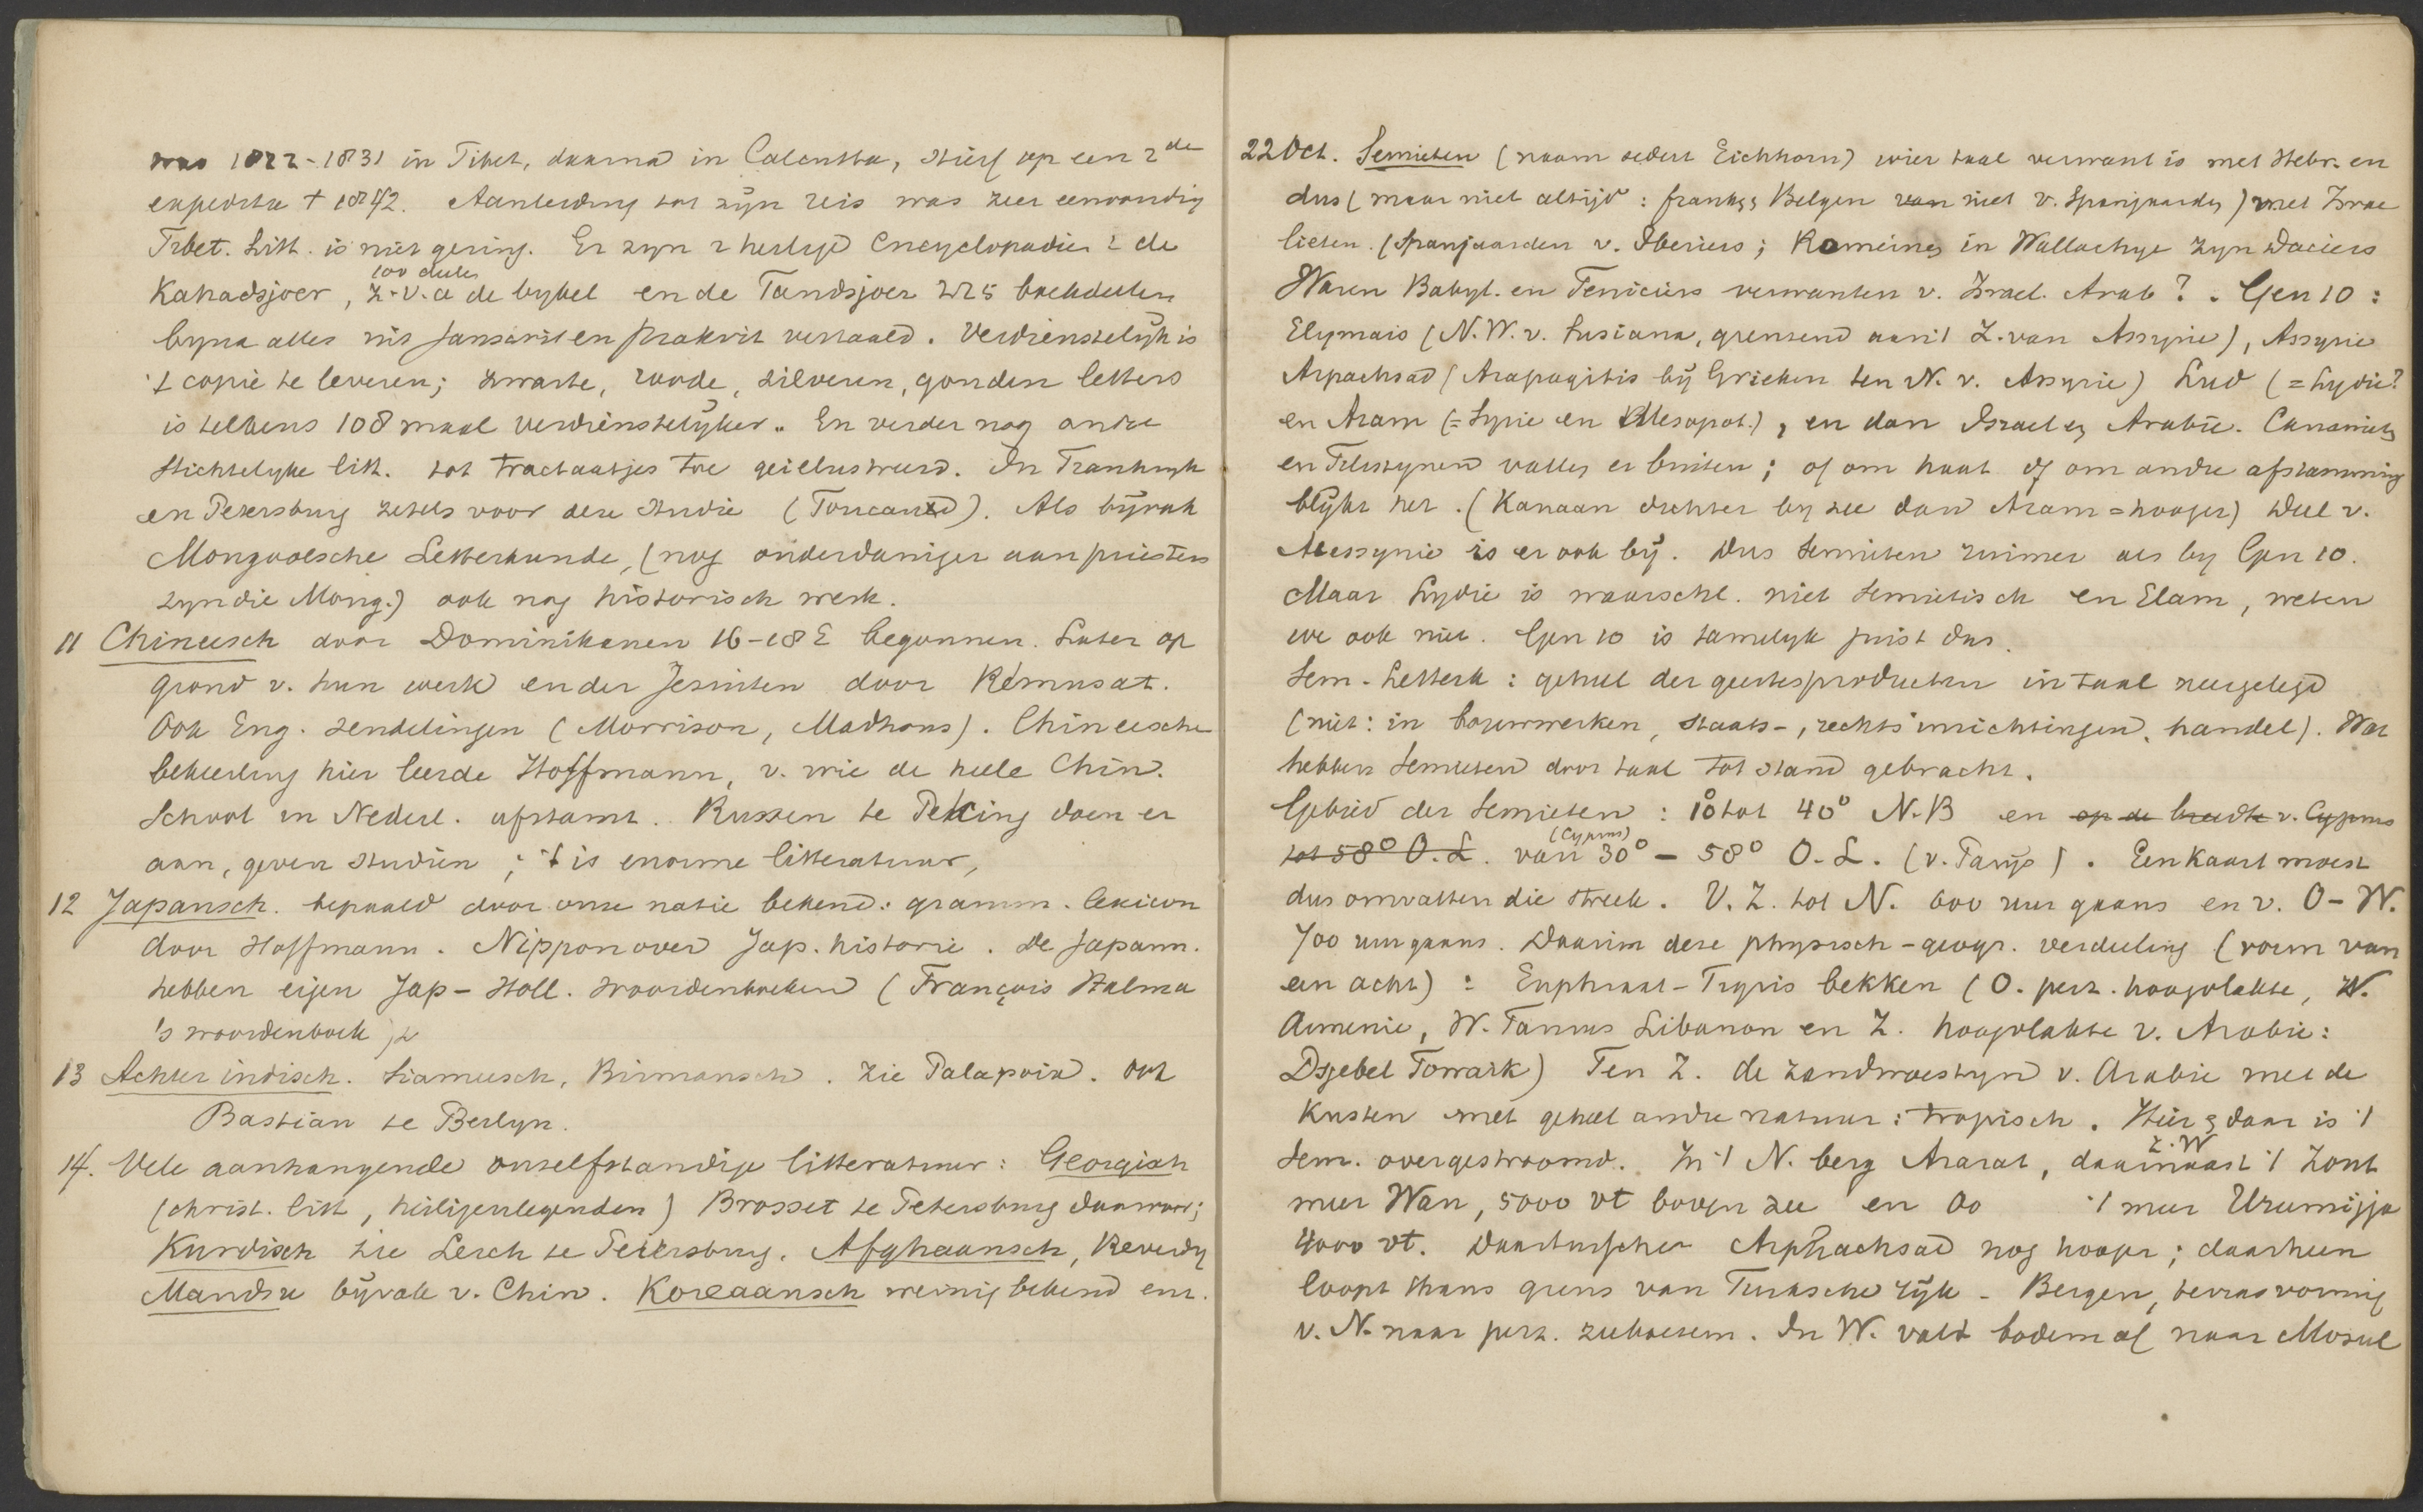 was 1822-1831 in Tibet, daarna in Calcutta, stierf op een 2de
expeditie † 1842. Aanleiding tot zijn reis was zeer eenvoudig
Tibet. Litt. is niet gering. Er zyn 2 heilige Encyclopadien : de
100 deelen
Kahadsjoer, z.v.a de bybel en de Tandsjoer 225 boekdeelen
byna alles uit Sanscrit en Prakrit vertaald. Verdienstelijk is
't copie te leveren; zwarte, roode, zilveren, gouden letters
is telkens 108 maal verdienstelijker. En verder nog andre
Stichtelyke litt. tot tractaatjes toe geillustreerd. In Frankryk
en Petersburg zetels voor deze studie (Foucaux). Als bijvak
Mongoolsche Letterkunde, (nog onderdaniger aan priesters
zyn die Mong.) ook nog historisch werk.
11 Chineesch door Dominikanen 16-18 E begonnen. Later op
grond v. hun werk en der Jesuiten door Rémusat.
Ook Eng. zendelingen (Morrison, Madhons). Chineesche
bekeering hier leerde Hoffmann, v. wie de heele Chin.
School in Nederl. afstamt. Russen te Peking doen er
aan, geven studien ; 't is enorme litteratuur,
12 Japansch. bepaald door onze natie bekend: gramm. lexicon
door Hoffmann. Nippon over Jap. historie. De Japann.
hebben eigen Jap-Holl. woordenboeken (François Halma
's woordenboek)
13 Achter indisch. Siameesch, Birmansch. Zie Palapoix. Ook
Bastian te Berlyn.
14. Vele aanhangende onzelfstandige litteratuur: Georgisch
(christ. litt, heiligenlegenden) Brosset te Petersburg daarvoor;
Kurdisch zie Lerch te Petersburg. Afghaansch, Reverdy
Mandsu bijvak v. Chin. Koreaansch weinig bekend enz.
22 Oct. Semieten (naam sedert Eichhorn) wier taal verwant is met Hebr. en
dus (maar niet altijd : franks, Belgen van niet v. Spanjaarden) met Israe
lieten. (Spanjaarden v. Iberiers; Romeinen in Wallachye zyn Daciers
Waren Babyl. en Feniciers verwanten v. Israel. Arab? . Gen 10 :
Elymais (N.W. v. Susiana, grensend aan 't Z. van Assyrie), Assyrie
Arpachsad (Arapagitis bij Grieken ten N. v. Assyrie) Lud (=Lydie?
en Aram (= Syrie en Mesopot.), en dan Israel en Arabie. Cananiets
en Filistynen vallen er buiten; of om haat of om andre afstamming
blijkt niet. (Kanaan dichter by zee dan Aram = hooger) Deel v.
Abessynie is er ook bij. Dus Semieten ruimer als by Gen 10.
Maar Lydie is waarschl. niet Semietisch en Elam, weten
we ook niet. Gen 10 is tamelyk juist dus.
Sem-Letterk : geheel der geestesproducten in taal neergelegd
(niet: in bouwwerken, staats-, rechts inrichtingen, handel). Wat
hebben Semieten door taal tot stand gebracht.
Gebied der Semieten : 10° tot 40° N.B en op de breedte v. Cyprus
(Cyprus)
tot 58° O.L. van 30° – 58° O.L. (v. Parijs). Een kaart moest
dus omvatten die streek. V. Z. tot N. 600 uur gaans en v. O-W.
700 uur gaans. Daarin deze physisch-geogr. verdeeling (vorm van
een acht) : Euphraat-Tigris bekken (O. perz. hoogvlakte, N.
Armenie, W. Taurus Libanon en Z. hoogvlakte v. Arabie:
Dsjebel Towaik) Ten Z. de zandwoestyn v. Arabie met de
Kusten met geheel andre natuur: tropisch. Hier en daar is 't
Sem. overgestroomd. In 't N. berg Ararat, daarnaast 't Zout
Z.W
meer Wan, 5000 vt boven zee en Oo 't meer Urumijja
4000 vt. Daartusschen Arphachsad nog hooger; daarheen
loopt thans grens van Turksche rijk - Bergen, terrasvormig
v. N. naar perz. zeeboezem. In W. valt bodem af naar Mosul